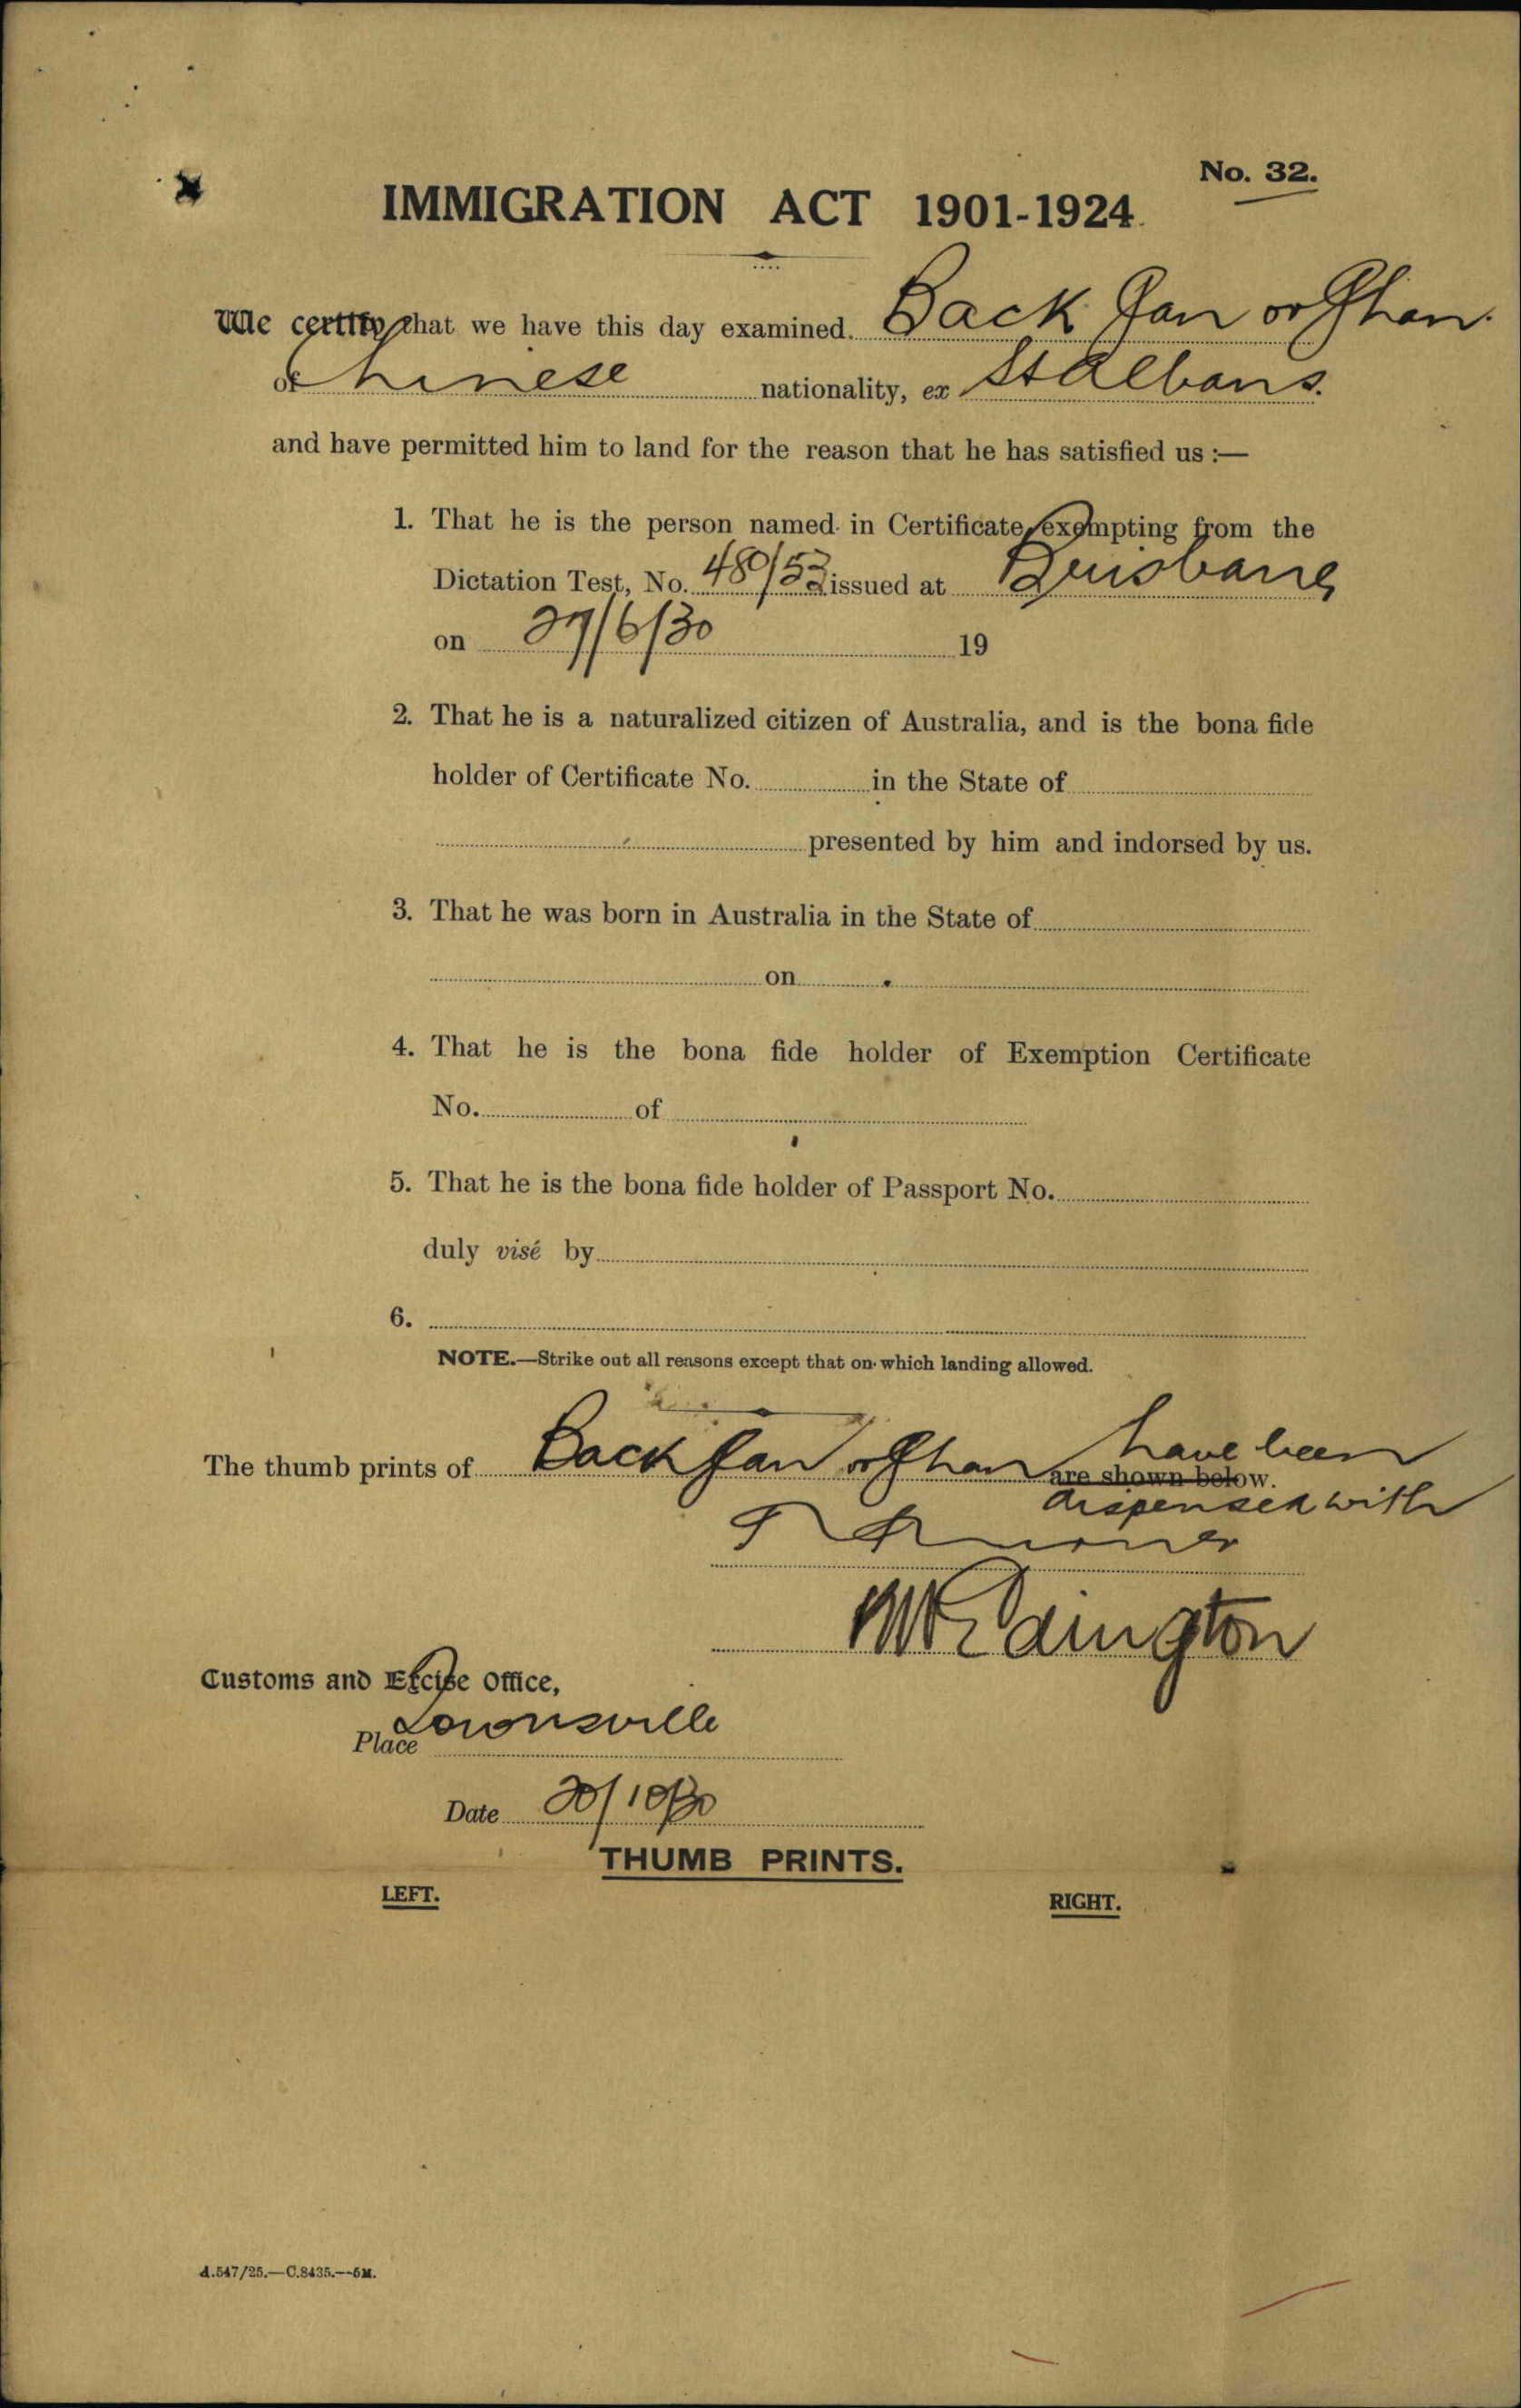 No. 32.
IMMIGRATION ACT 1901-1924.
We certify that we have this day examined Back or
of Chinese nationality, ex St Albans.
and have permitted him to land for the reason that he has satisfied us :—
1. That he is the person named in Certificate exempting from the
Dictation Test, No. 480/53 issued at Brisbane
on 27/6/30 19
2. That he is a naturalized citizen of Australia, and is the bona fide
holder of Certificate No. in the State of
presented by him and indorsed by us.
3. That he was born in Australia in the State of
on
4. That he is the bona fide holder of Exemption Certificate
No. of
5. That he is the bona fide holder of Passport No.
duly visé by
6.
NOTE.—Strike out all reasons except that on which landing allowed.
have been
The thumb prints of Back or are shown below.
dispensed with
Customs and Excise Office,
Place Townsville
Date 20/10/30
THUMB PRINTS.
LEFT. RIGHT.
A.547/25.—C.8435.—5M.